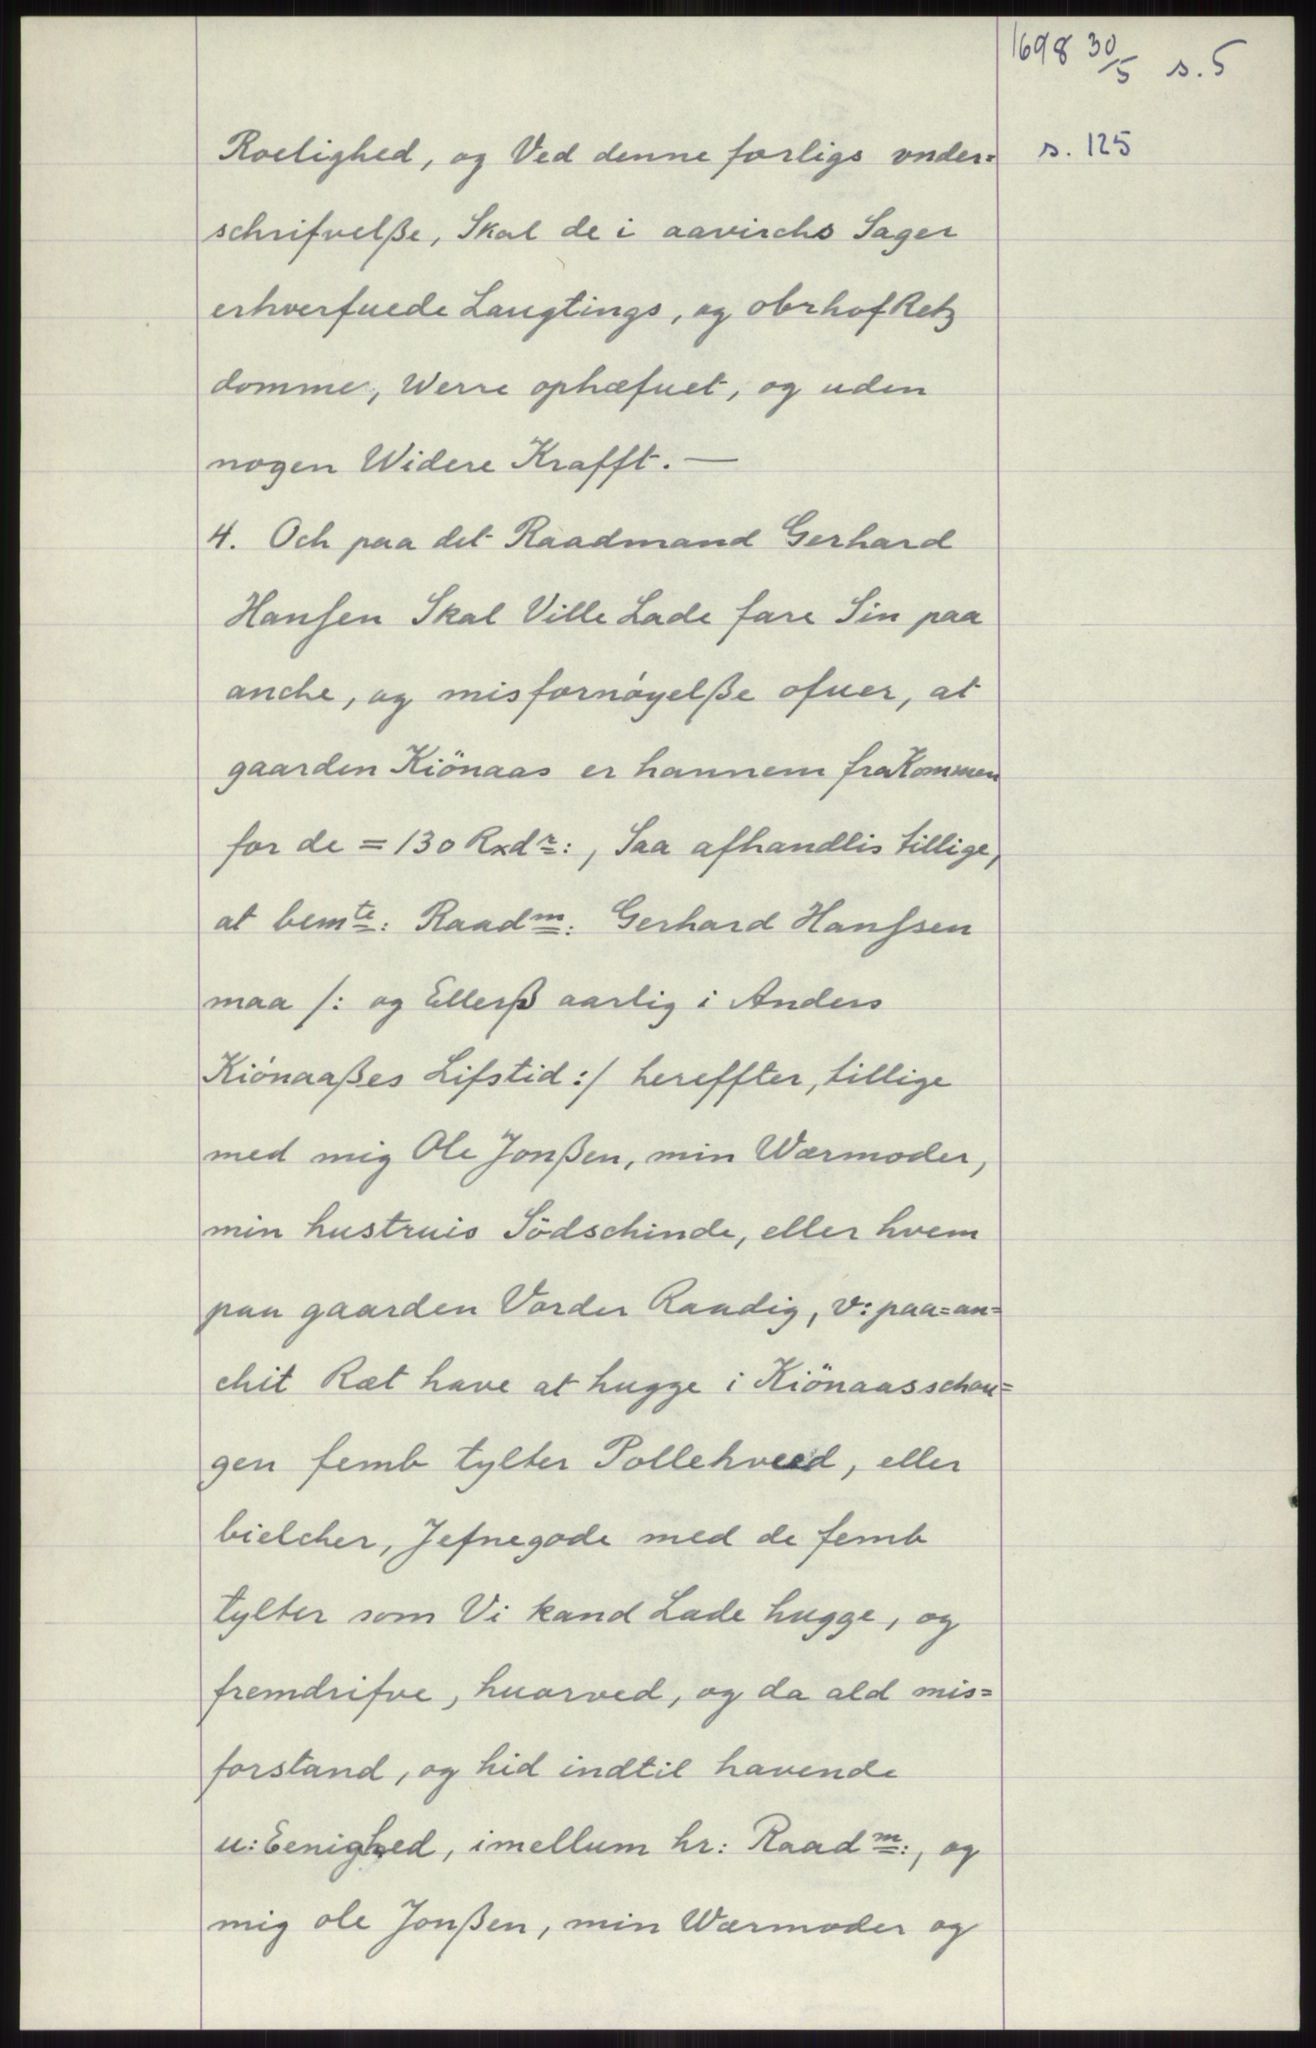 1698 30/5 s. 5
s. 125
Roelighed, og Ved denne forligs vnder=
schrifvelße, Skal de i aavirchs Sager
erhverfuede Laugtings, og obrhofRetz
domme, Werre ophæfuet, og uden
nogen Widere Krafft. —
4. Och paa det Raadmand Gerhard
Hansen Skal Ville Lade fare Sin paa
anche, og misfornóyelße ofuer, at
gaarden Kiönaas er hannem fraKommen
for de = 130 Rxdr:, Saa afhandlis tillige,
at bemte: Raadm: Gerhard Hanssen
maa /: og Ellerß aarlig i Anders
Kiónaaßes Lifstid :/ hereffter, tillige
med mig Ole Jonßen, min Wærmoder,
min hustruis Södschinde, eller hvem
paa gaarden Vorder Raadig, v: paa=an=
chit Ræt have at hugge i Kiönaasschou=
gen femb tylter Pollehveed, eller
bielcher, Jefnegode med de femb
tylter som Vi kand Lade hugge, og
fremdrifve, huorved, og da ald mis=
forstand, og hid indtil havende
u:Eenighed, imellum hr: Raadm:, og
mig ole Jonßen, min Wærmoder og